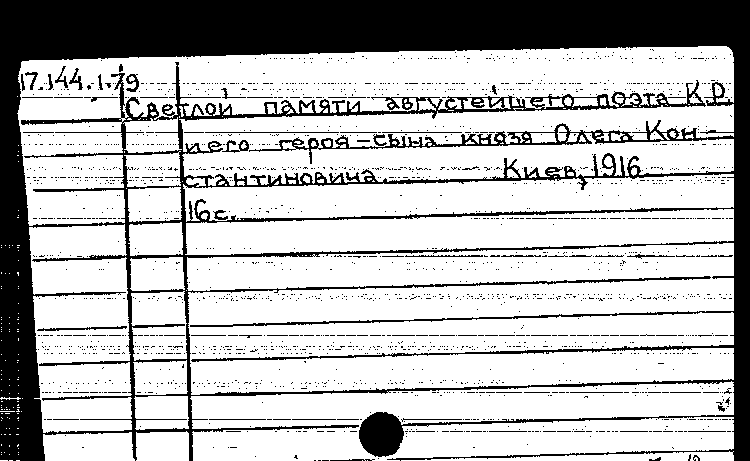 17.144.1.79
Светлой памяти августейшего поэта К.Р.
и его героя-сына князя Олега Кон-
стантиновича. Киев, 1916
16 с.